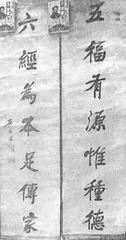 五福有源惟種德
六經為本足傳家